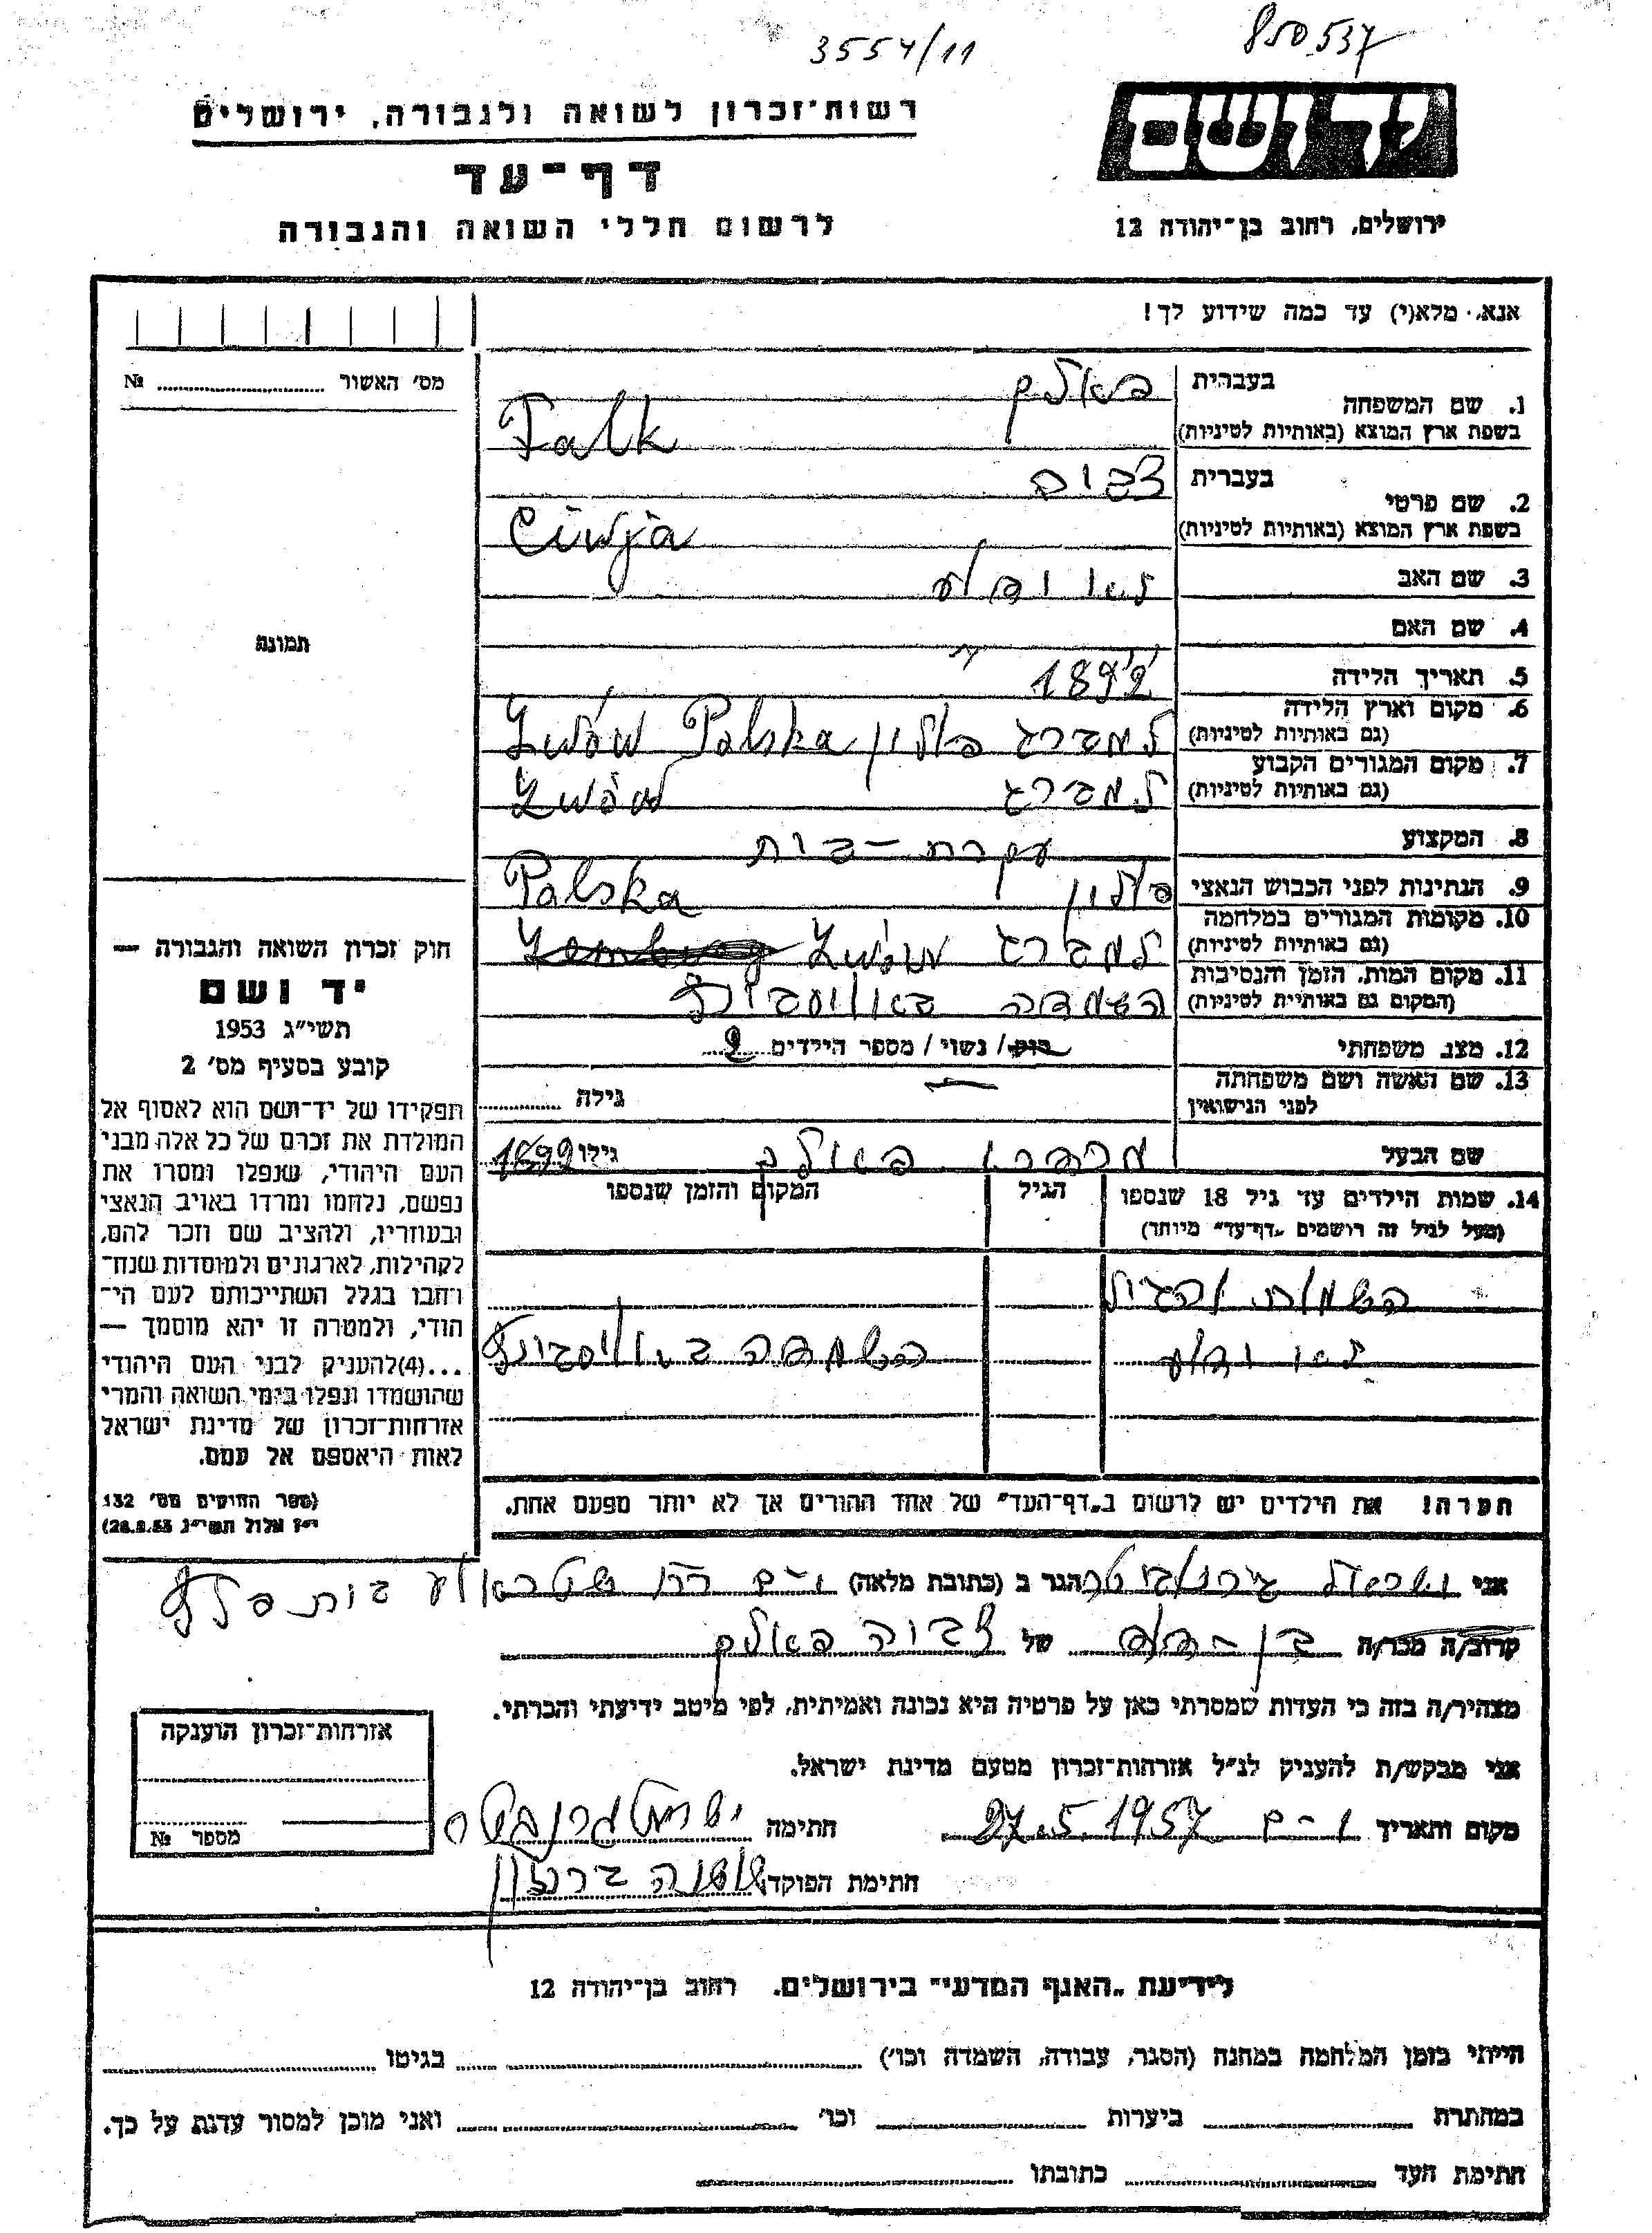 3554/11
850537
רשות־זכרון לשואה ולגבורה, ירושלים
דף־עד
לרשום חללי השואה והגבורה
יד ושם
ירושלים, רחוב בן־יהודה 12
אנא, מלא(י) עד כמה שידוע לך!
מס׳ האשור № 
1. שם המשפחה
בעברית פאלק
בשפת ארץ המוצא (באותיות לטיניות) Falk
2. שם פרטי
בעברית
בשפת ארץ המוצא (באותיות לטיניות)
3. שם האב
4. שם האם
5. תאריך הלידה 1899
6. מקום וארץ הלידה
(גם באותיות לטיניות) למברג פולין Lwów Polska
7. מקום המגורים הקבוע
(גם באותיות לטיניות) למברג Lwów
8. המקצוע עקרת-בית
9. הנתינות לפני הכבוש הנאצי פולין Polska
10. מקומות המגורים במלחמה
(גם באותיות לטיניות) למברג Lwów Lemberg
11. מקום המות, הזמן והנסיבות
(המקום גם באותיות לטיניות) השמדה באושביץ
12. מצב משפחתי רוק / נשוי / מספר הילדים 2
13. שם האשה ושם משפחתה
לפני הנישואין גילה
שם הבעל פאלק גילו 1899
14. שמות הילדים עד גיל 18 שנספו
(מעל לגיל זה רושמים „דף־עד” מיוחד)
הגיל
המקום והזמן שנספו
השמדה באושביץ
הערה! את הילדים יש לרשום ב„דף־העד” של אחד ההורים אך לא יותר מפעם אחת.
תמונה
חוק זכרון השואה והגבורה —
יד ושם
תשי״ג 1953
קובע בסעיף מס׳ 2
תפקידו של יד־ושם הוא לאסוף אל
המולדת את זכרם של כל אלה מבני
העם היהודי, שנפלו ומסרו את
נפשם, נלחמו ומרדו באויב הנאצי
ובעוזריו, ולהציב שם וזכר להם,
לקהילות, לארגונים ולמוסדות שנח־
רבו בגלל השתייכותם לעם הי־
הודי, ולמטרה זו יהא מוסמך —
...(4)להעניק לבני העם היהודי
שהושמדו ונפלו בימי השואה והמרי
אזרחות־זכרון של מדינת ישראל
לאות היאספם אל עמם.
(ספר החוקים מס׳ 132
י״ז אלול תשי״ג 28.8.53)
אני ישראל הגר ב (כתובת מלאה) י-ם
קרוב/ה מכר/ה בן-דוד של צביה פאלק
מצהיר/ה בזה כי העדות שמסרתי כאן על פרטיה היא נכונה ואמיתית, לפי מיטב ידיעתי והכרתי.
אני מבקש/ת להעניק לנ״ל אזרחות־זכרון מטעם מדינת ישראל.
מקום ותאריך י-ם 27.5.1957 חתימה ישראל
חתימת הפוקד שושנה ברנזון
אזרחות־זכרון הוענקה
מספר №
לידיעת „האגף המדעי” בירושלים, רחוב בן־יהודה 12
הייתי בזמן המלחמה במחנה (הסגר, עבודה, השמדה וכו׳) בגיטו
במחתרת ביערות וכו׳ ואני מוכן למסור עדות על כך.
חתימת העד כתובתו